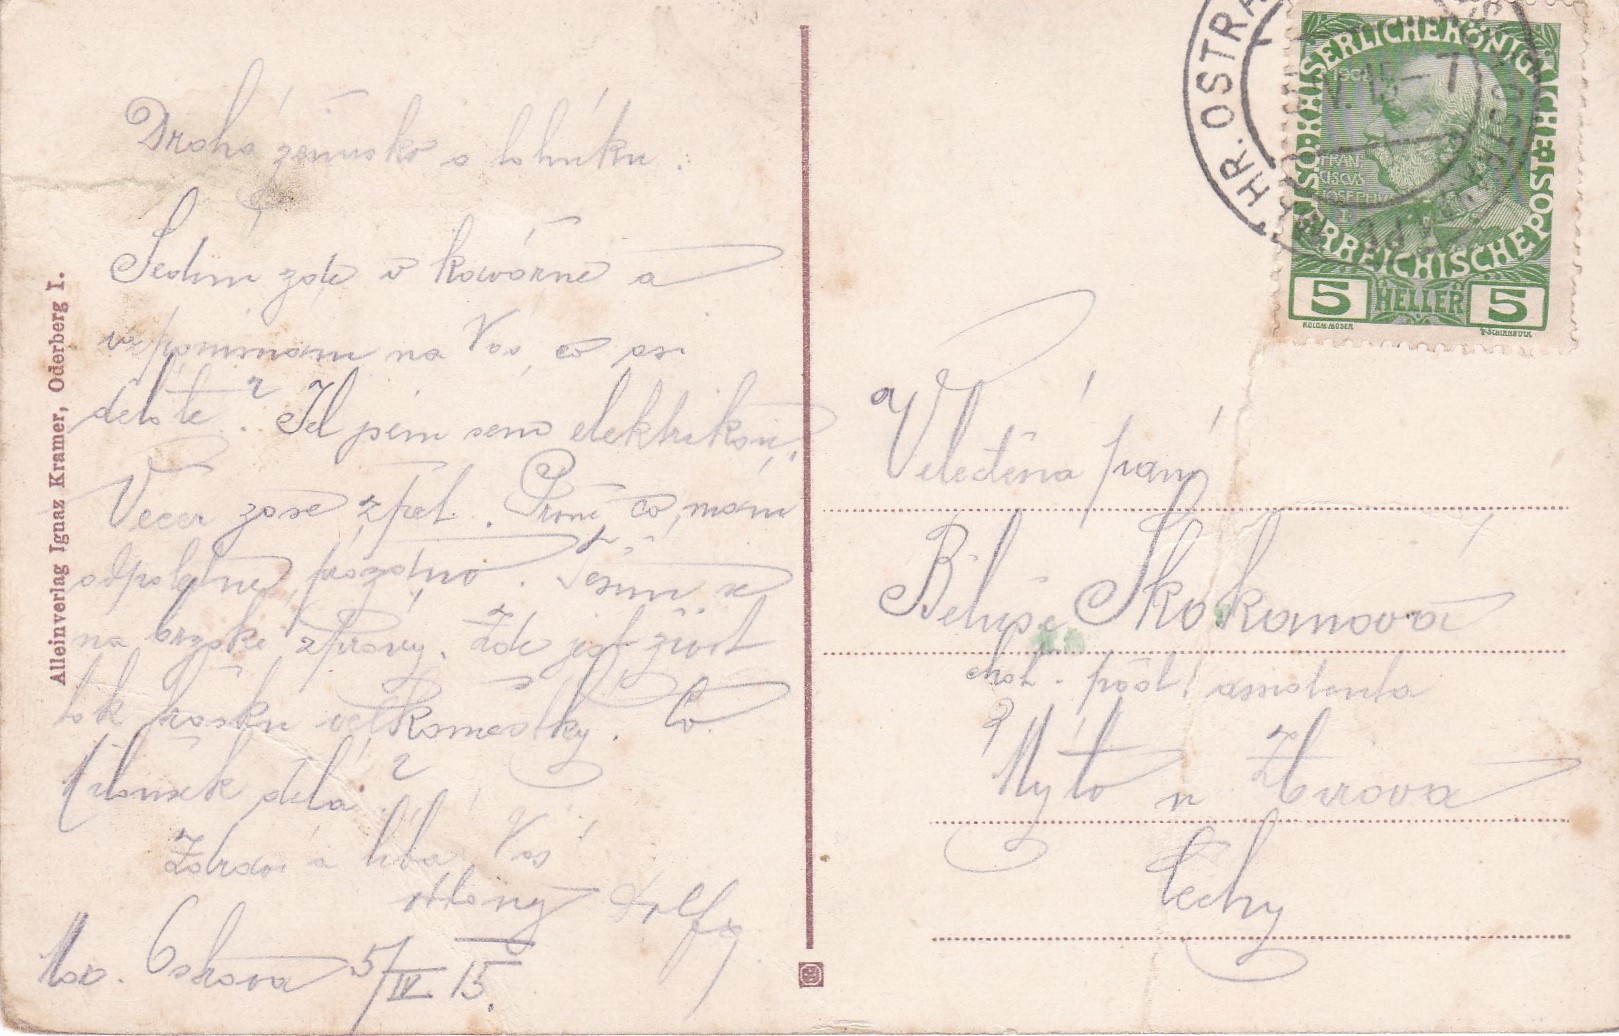 Drahá ženusko a
Sedím zde v kavárně a
vzpomínám na Vás, co asi
děláte? Jel jsem sem elektrikou.
Večer zase zpět. Psaní, co, mám
odpoledne prázdno. Těším se
na brzské zprávy. Zde jest život
tak trošku velkoměstký. Co
Miloušek dělá?
Zdraví a líbá Vás
oddaný Dolfa
Mor. Ostrava 5/IV 15.
Alleinverlag Ignaz Kramer, Oderberg I.
HR. OSTRA
KAISERLICHE KÖNIGLICHE ÖSTERREICHISCHE POST
1908
FRAN
CISCUS
JOSEPHUS
I
5 HELLER 5
KOLOM·MOSER
F·SCHIRNBÖCK
Velectěná paní
Běluše Skokanová
choť. pošt. assistenta
Mýto u Zbirova
Čechy